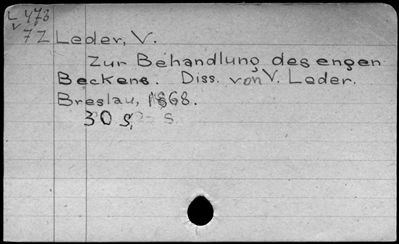 L 473
v
72 Leder, V.
Zur Behandlung des engen
Beckens. Diss. von V. Leder.
Breslau, 1868.
30 S.